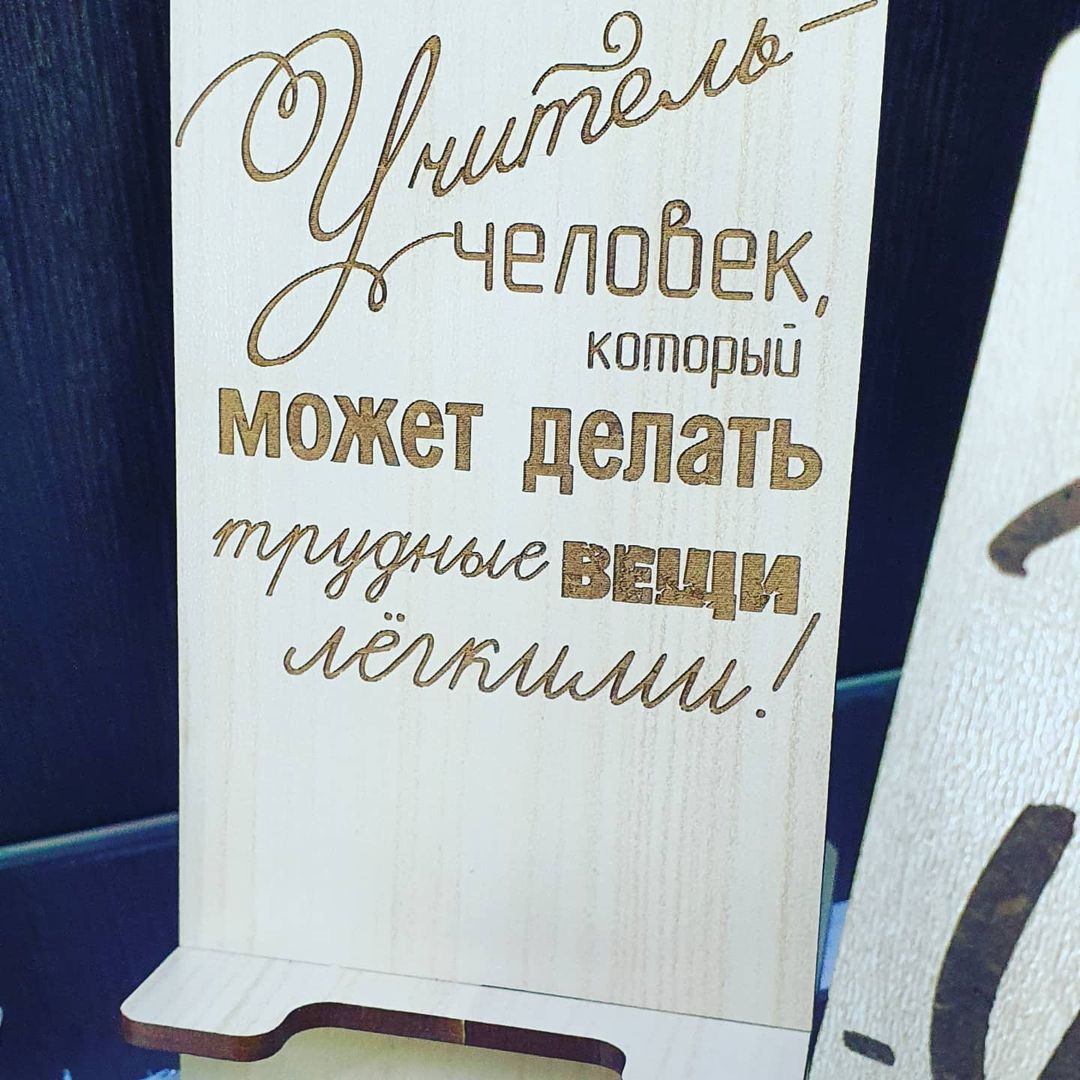 Учитель—
человек,
который
может делать
трудные вещи
лёгкими!